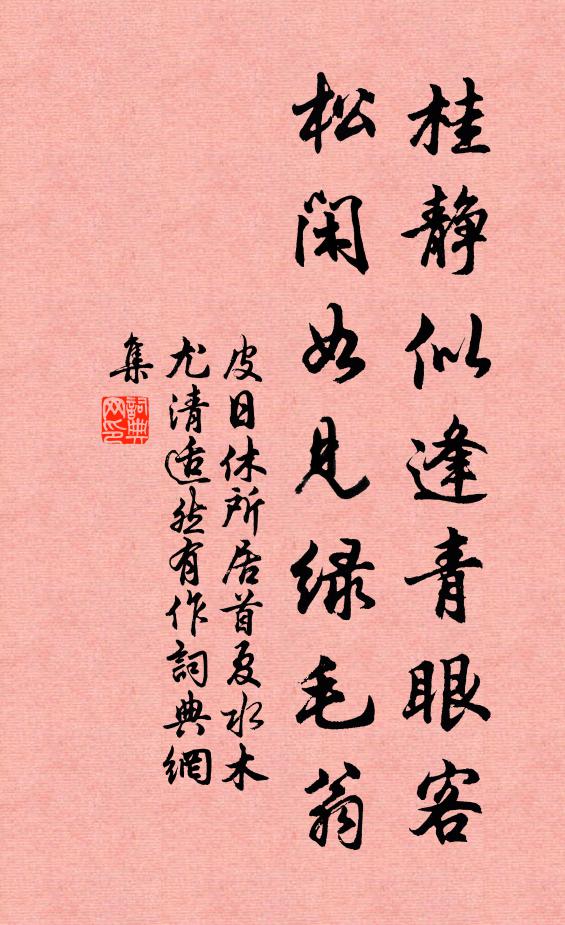 桂静似逢青眼客
松闲如见绿毛翁
皮日休所居首夏水木
尤清适然有作詞典網
集
詞典
网印